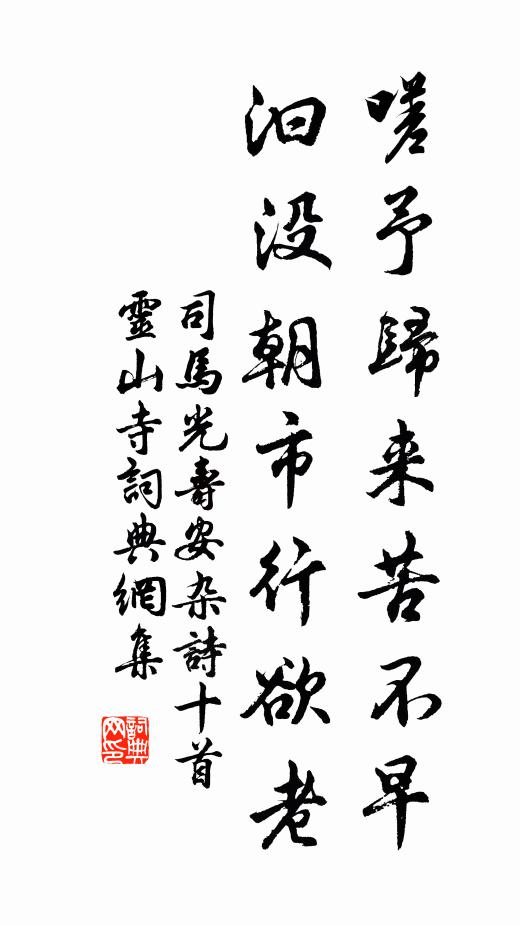 嗟予歸来苦不早
汩没朝市行欲老
司馬光壽安杂詩十首
靈山寺詞典網集
詞典网印